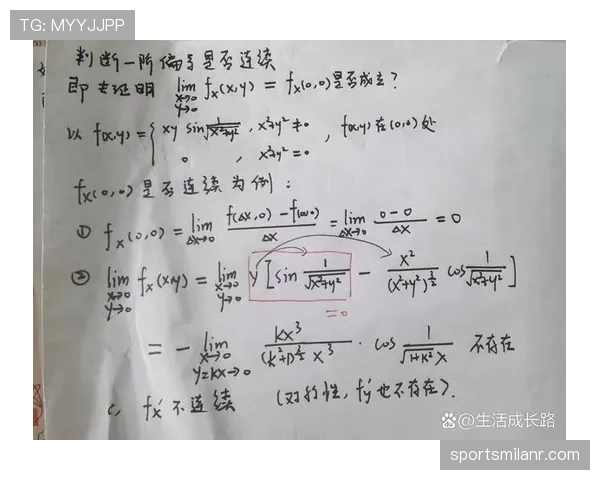 TG: MYYJJPP
判断一阶偏导是否连续
即去证明 lim_{x→0, y→0} f_x(x,y) = f_x(0,0)是否成立?
以 f(x,y) = { xy sin 1/√(x²+y²), x²+y² ≠ 0 ; 0, x²+y² = 0 , f(x,y)在(0,0)处
f_x(0,0)是否连续为例:
① f_x(0,0) = lim_{Δx→0} (f(Δx,0) - f(0,0))/Δx = lim_{Δx→0} (0-0)/Δx = 0
② lim_{x→0, y→0} f_x(x,y) = lim_{x→0, y→0} y [ sin 1/√(x²+y²) - x²/(x²+y²)^{3/2} cos 1/√(x²+y²) ]
=0
= - lim_{x→0, y=kx→0} kx³/((k²+1)^{3/2} x³) · cos 1/(√(1+k²) x) 不存在
f_x' 不连续 (对称性, f_y' 也不存在).
@生活成长路
sportsmilanr.com